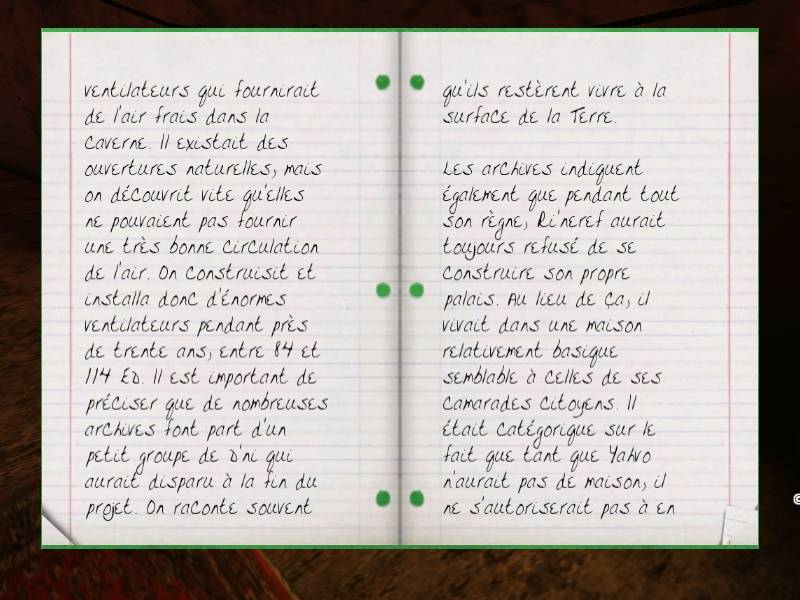 ventilateurs qui fournirait
de l'air frais dans la
caverne. Il existait des
ouvertures naturelles, mais
on découvrit vite qu'elles
ne pouvaient pas fournir
une très bonne circulation
de l'air. On construisit et
installa donc d'énormes
ventilateurs pendant près
de trente ans, entre 84 et
114 ED. Il est important de
préciser que de nombreuses
archives font part d'un
petit groupe de D'ni qui
aurait disparu à la fin du
projet. On raconte souvent
qu'ils restèrent vivre à la
surface de la Terre.
Les archives indiquent
également que pendant tout
son règne, Ri'neref aurait
toujours refusé de se
construire son propre
palais. Au lieu de ça, il
vivait dans une maison
relativement basique
semblable à celles de ses
camarades citoyens. Il
était catégorique sur le
fait que tant que Yahvo
n'aurait pas de maison, il
ne s'autoriserait pas à en
©